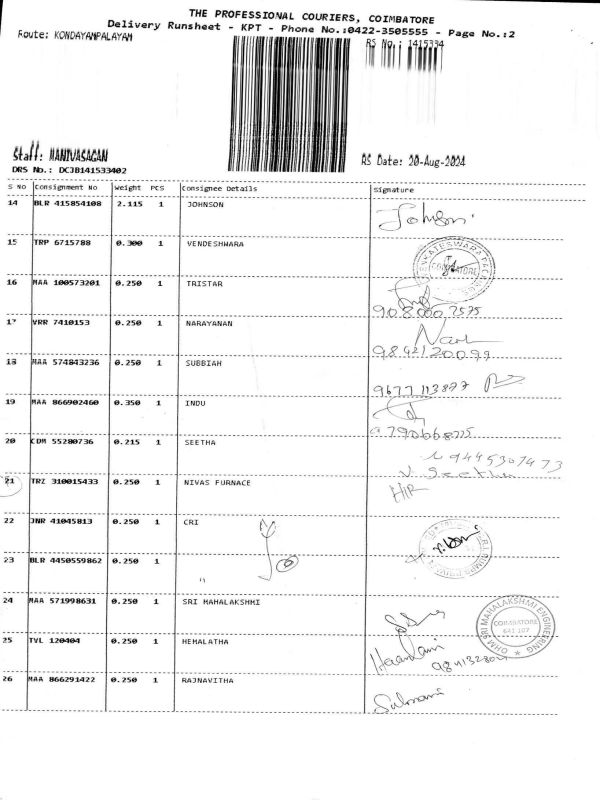 THE PROFESSIONAL COURIERS, COIMBATORE
Delivery Runsheet - KPT - Phone No.:0422-3505555 - Page No.:2
Route: KONDAYAMPALAYAM
RS No.: 1415334
Staff: MANIVASAGAN
RS Date: 20-Aug-2024
DRS No.: DCJB141533402
S NO Consignment No Weight PCS Consignee Details Signature
14 BLR 415854108 2.115 1 JOHNSON Johnson
15 TRP 6715788 0.300 1 VENDESHWARA
COIMBATORE
16 MAA 100573201 0.250 1 TRISTAR
17 VRR 7410153 0.250 1 NARAYANAN
9842120099
18 MAA 574843236 0.250 1 SUBBIAH
9677113877
19 MAA 866902460 0.350 1 INDU
20 CDM 55280736 0.215 1 SEETHA
9445307473
V. Seetha
21 TRZ 310015433 0.250 1 NIVAS FURNACE
22 JNR 41045813 0.250 1 CRI
23 BLR 4450559862 0.250 1 "
24 MAA 571998631 0.250 1 SRI MAHALAKSHMI
OHM SRI MAHALAKSHMI ENGINEERING
COIMBATORE
641 107
25 TVL 120404 0.250 1 HEMALATHA
26 MAA 866291422 0.250 1 RAJNAVITHA